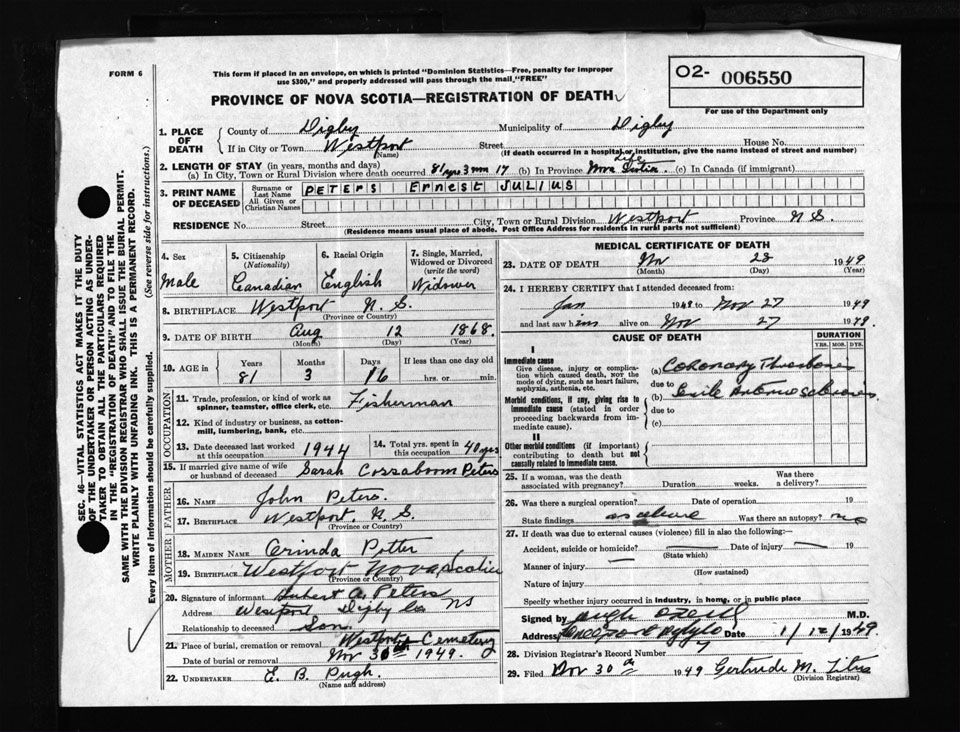 FORM 6
This form if placed in an envelope, on which is printed "Dominion Statistics—Free, penalty for improper
use $300," and properly addressed will pass through the mail, "FREE"
O2- 006550
For use of the Department only
PROVINCE OF NOVA SCOTIA—REGISTRATION OF DEATH
1. PLACE OF DEATH
County of Digby Municipality of Digby
If in City or Town Westport Street House No.
(Name) (If death occurred in a hospital or institution, give the name instead of street and number)
2. LENGTH OF STAY (in years, months and days)
(a) In City, Town or Rural Division where death occurred 81 yrs 3 mon 17 (b) In Province Life Nova Scotia (c) In Canada (if immigrant)
3. PRINT NAME OF DECEASED
Surname or Last Name PETERS Ernest JULIUS
All Given or Christian Names
RESIDENCE No. Street City, Town or Rural Division Westport Province N S.
(Residence means usual place of abode. Post Office Address for residents in rural parts not sufficient)
4. Sex Male
5. Citizenship (Nationality) Canadian
6. Racial Origin English
7. Single, Married, Widowed or Divorced (write the word) Widower
8. BIRTHPLACE Westport N. S.
(Province or Country)
9. DATE OF BIRTH Aug 12 1868
(Month) (Day) (Year)
10. AGE in Years Months Days If less than one day old
81 3 16 hrs. or min.
OCCUPATION
11. Trade, profession, or kind of work as spinner, teamster, office clerk, etc. Fisherman
12. Kind of industry or business, as cotton-mill, lumbering, bank, etc.
13. Date deceased last worked at this occupation 1944
14. Total yrs. spent in this occupation 40 yrs
15. If married give name of wife or husband of deceased Sarah Cossaboom Peters
FATHER
16. NAME John Peters.
17. BIRTHPLACE Westport, N. S.
(Province or Country)
MOTHER
18. MAIDEN NAME Orinda Potter
19. BIRTHPLACE Westport Nova Scotia
(Province or Country)
20. Signature of informant Peters
Address Westport Digby Co NS
Relationship to deceased Son.
21. Place of burial, cremation or removal Westport Cemetery
Date of burial or removal Nov 30th 1949.
22. UNDERTAKER E. B. Pugh.
(Name and address)
MEDICAL CERTIFICATE OF DEATH
23. DATE OF DEATH Nov 28 1949
(Month) (Day) (Year)
24. I HEREBY CERTIFY that I attended deceased from:
Jan 1949 to Nov 27 1949
and last saw him alive on Nov 27 1949.
CAUSE OF DEATH
DURATION
YRS. MOS. DYS.
I
Immediate cause
Give disease, injury or complication which caused death, NOT the mode of dying, such as heart failure, asphyxia, asthenia, etc.
(a) Coronary Thrombosis
due to
Morbid conditions, if any, giving rise to immediate cause (stated in order proceeding backwards from immediate cause).
(b) Senile Arteriosclerosis
due to
(c)
II
Other morbid conditions (if important) contributing to death but not causally related to immediate cause.
25. If a woman, was the death associated with pregnancy? Duration weeks. Was there a delivery?
26. Was there a surgical operation? Date of operation 19
State findings as above Was there an autopsy? no
27. If death was due to external causes (violence) fill in also the following:
Accident, suicide or homicide? Date of injury 19
(State which)
Manner of injury
(How sustained)
Nature of injury
Specify whether injury occurred in industry, in home, or in public place
Signed by M.D.
Address Date 1/12/1949.
28. Division Registrar's Record Number 7
29. Filed Nov 30th 1949 Gertrude M. Titus
(Division Registrar)
SEC. 46—VITAL STATISTICS ACT MAKES IT THE DUTY
OF THE UNDERTAKER OR PERSON ACTING AS UNDER-
TAKER TO OBTAIN ALL THE PARTICULARS REQUIRED
IN THE "REGISTRATION OF DEATH" AND TO FILE THE
SAME WITH THE DIVISION REGISTRAR WHO SHALL ISSUE THE BURIAL PERMIT.
WRITE PLAINLY WITH UNFADING INK. THIS IS A PERMANENT RECORD.
Every item of information should be carefully supplied. (See reverse side for instructions.)